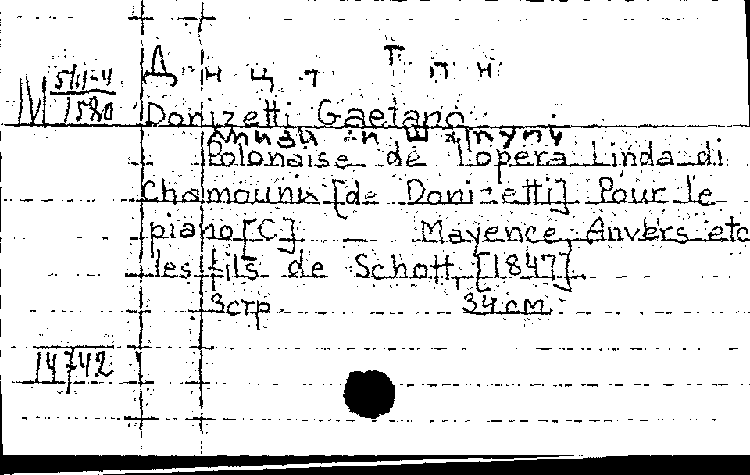 Д н ц т Т п н
М 511-4
1580
Donizetti Gaetano
Polonaise de l'opera Linda di
Chamounix [de Donizetti]. Pour le
piano [C] — Mayence, Anvers etc
les fils de Schott, [1847].
3стр. 34 см.
14742